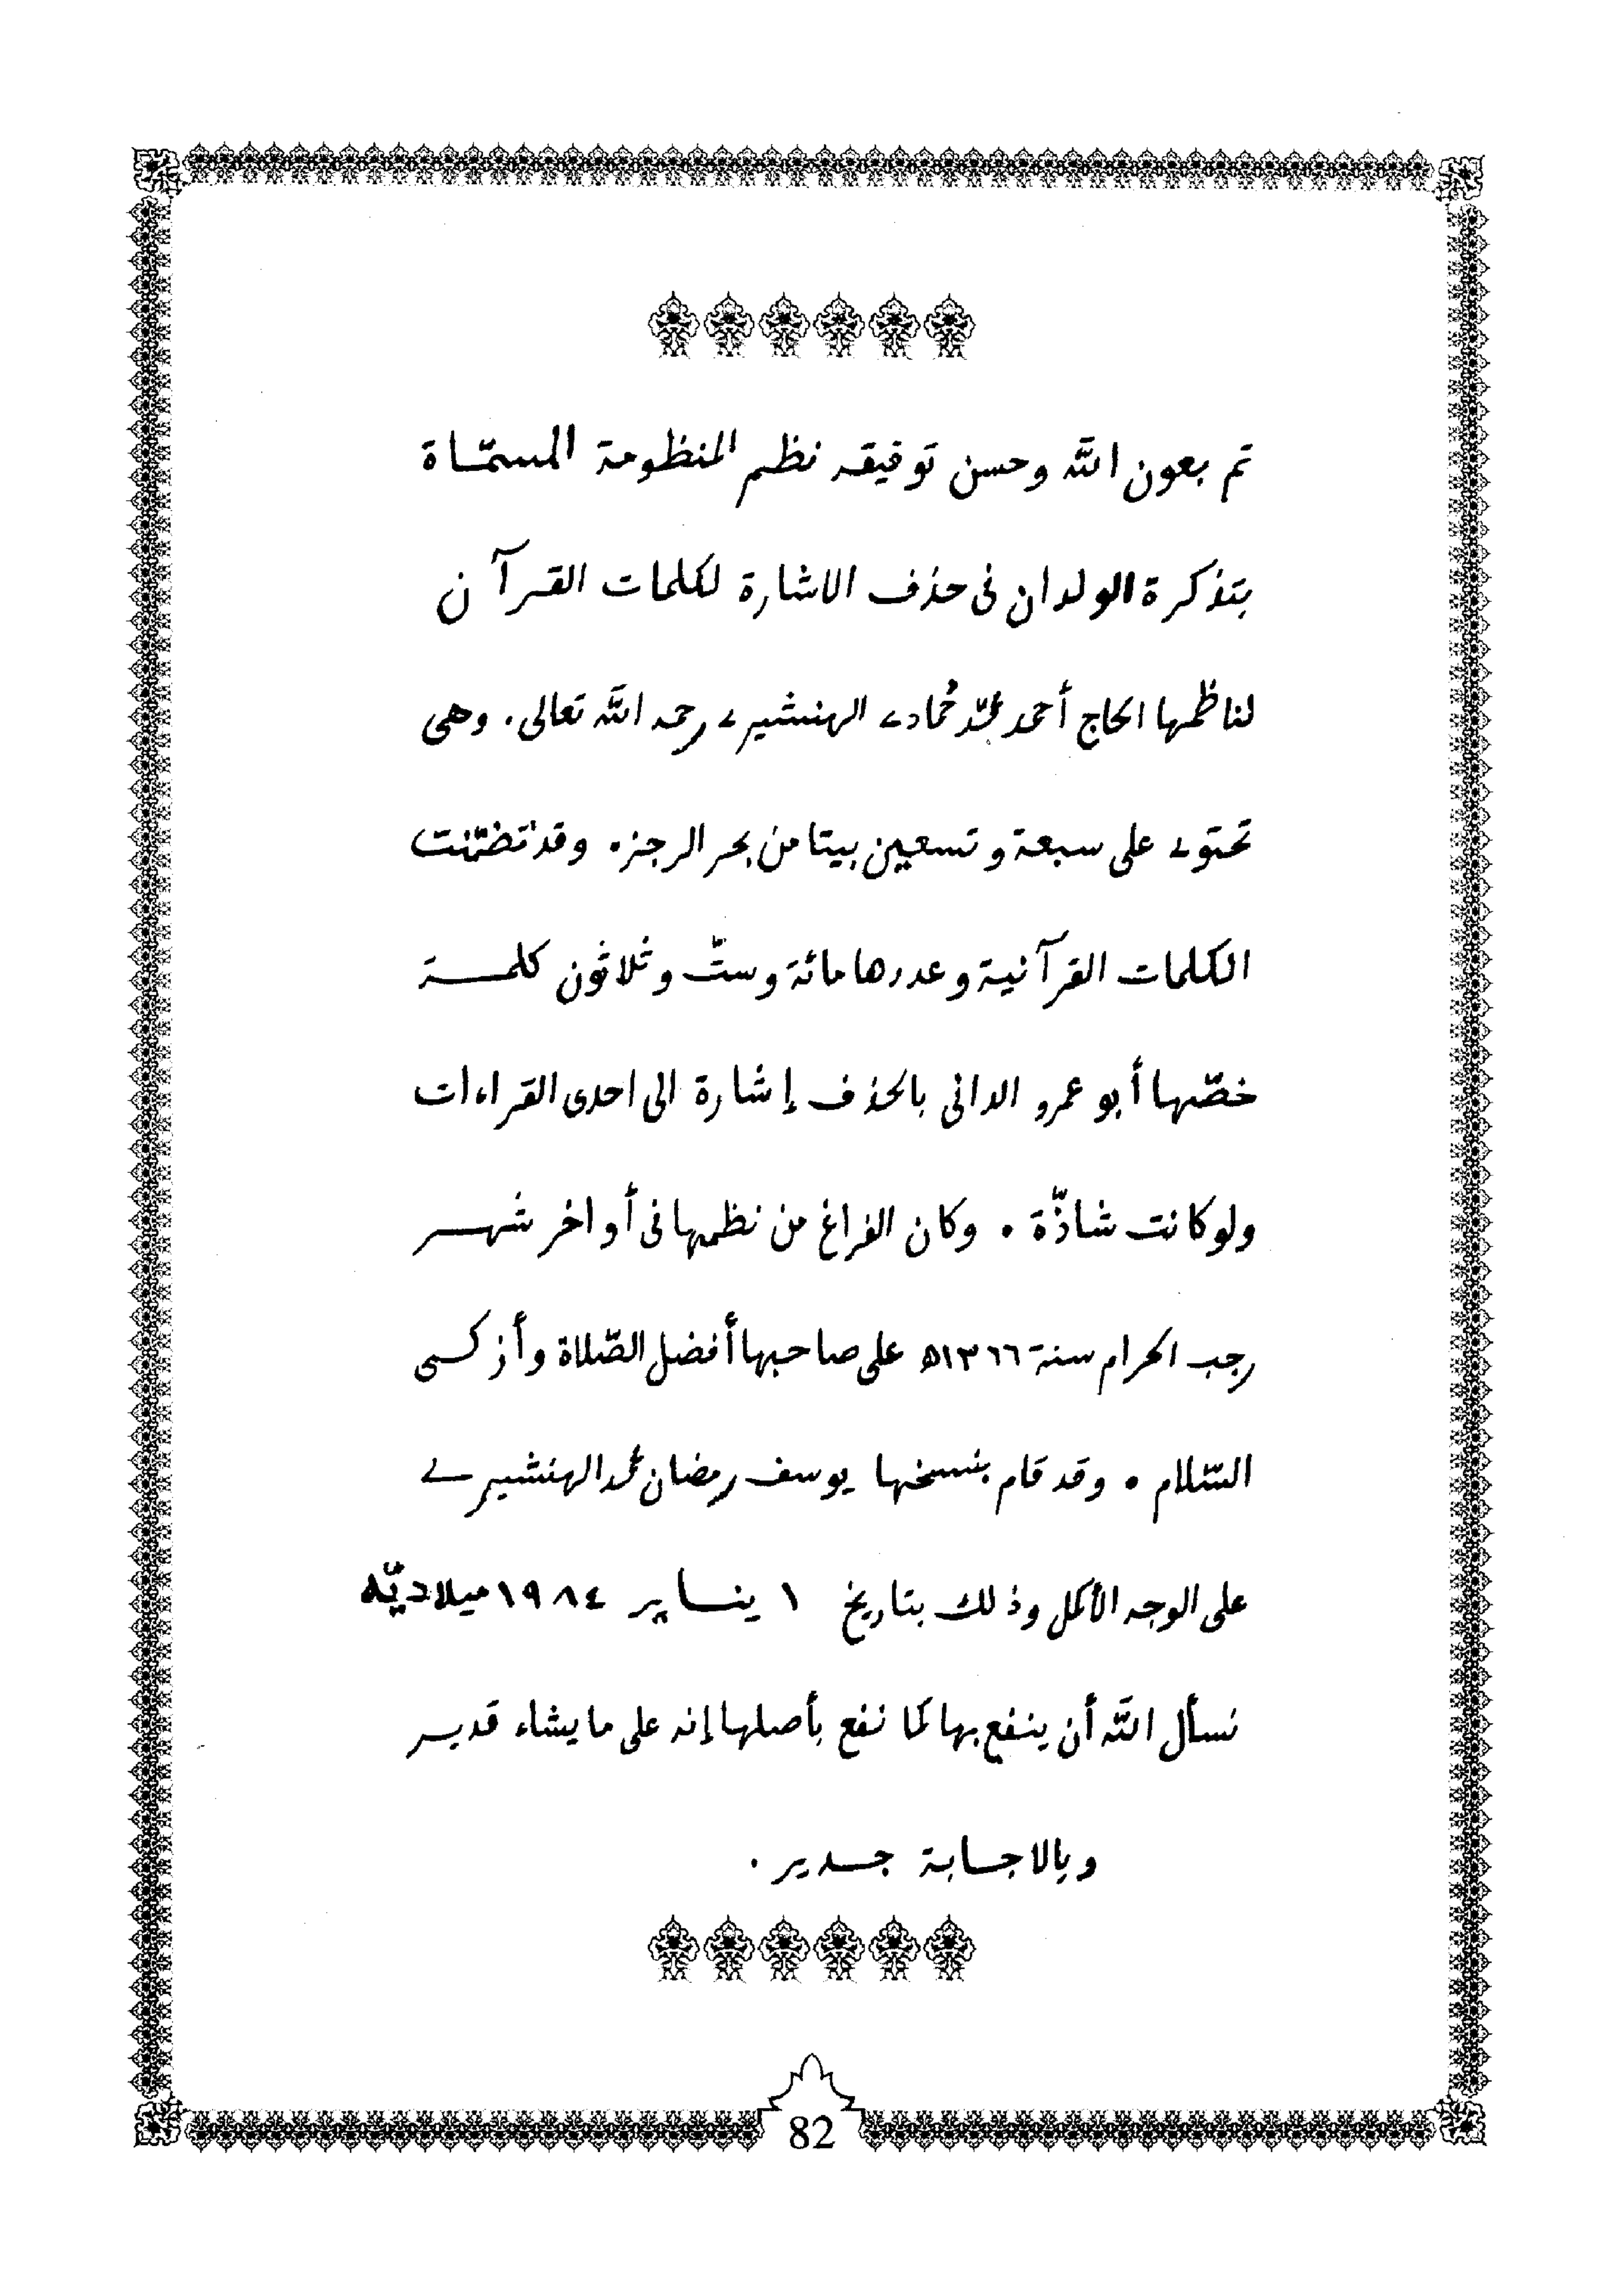 تم بعون اللَّه وحسن توفيقه نظم المنظومة المسمّاة
بتذكرة الولدان فى حذف الاشارة لكلمات القرآن
لناظمها الحاج أحمد محمّد حُمادى الهنشيرى رحمه اللَّه تعالى. وهى
تحتوى على سبعة وتسعين بيتا من بحر الرجز. وقد تضمّنت
الكلمات القرآنية وعددها مائة وستّ وثلاثون كلمة
خصّها أبو عمرو الدانى بالحذف إشارة الى احدى القراءات
ولو كانت شاذّة . وكان الفراغ من نظمها فى أواخر شهر
رجب الحرام سنة ١٣٦٦ه على صاحبها أفضل الصّلاة وأزكى
السّلام . وقد قام بنسخها يوسف رمضان محمد الهنشيرى
على الوجه الأكمل وذلك بتاريخ ١ يناير ١٩٨٤ ميلاديّه
نسأل اللَّه أن ينفع بها كما نفع بأصلها إنه على ما يشاء قدير
وبالاجابة جدير .
82